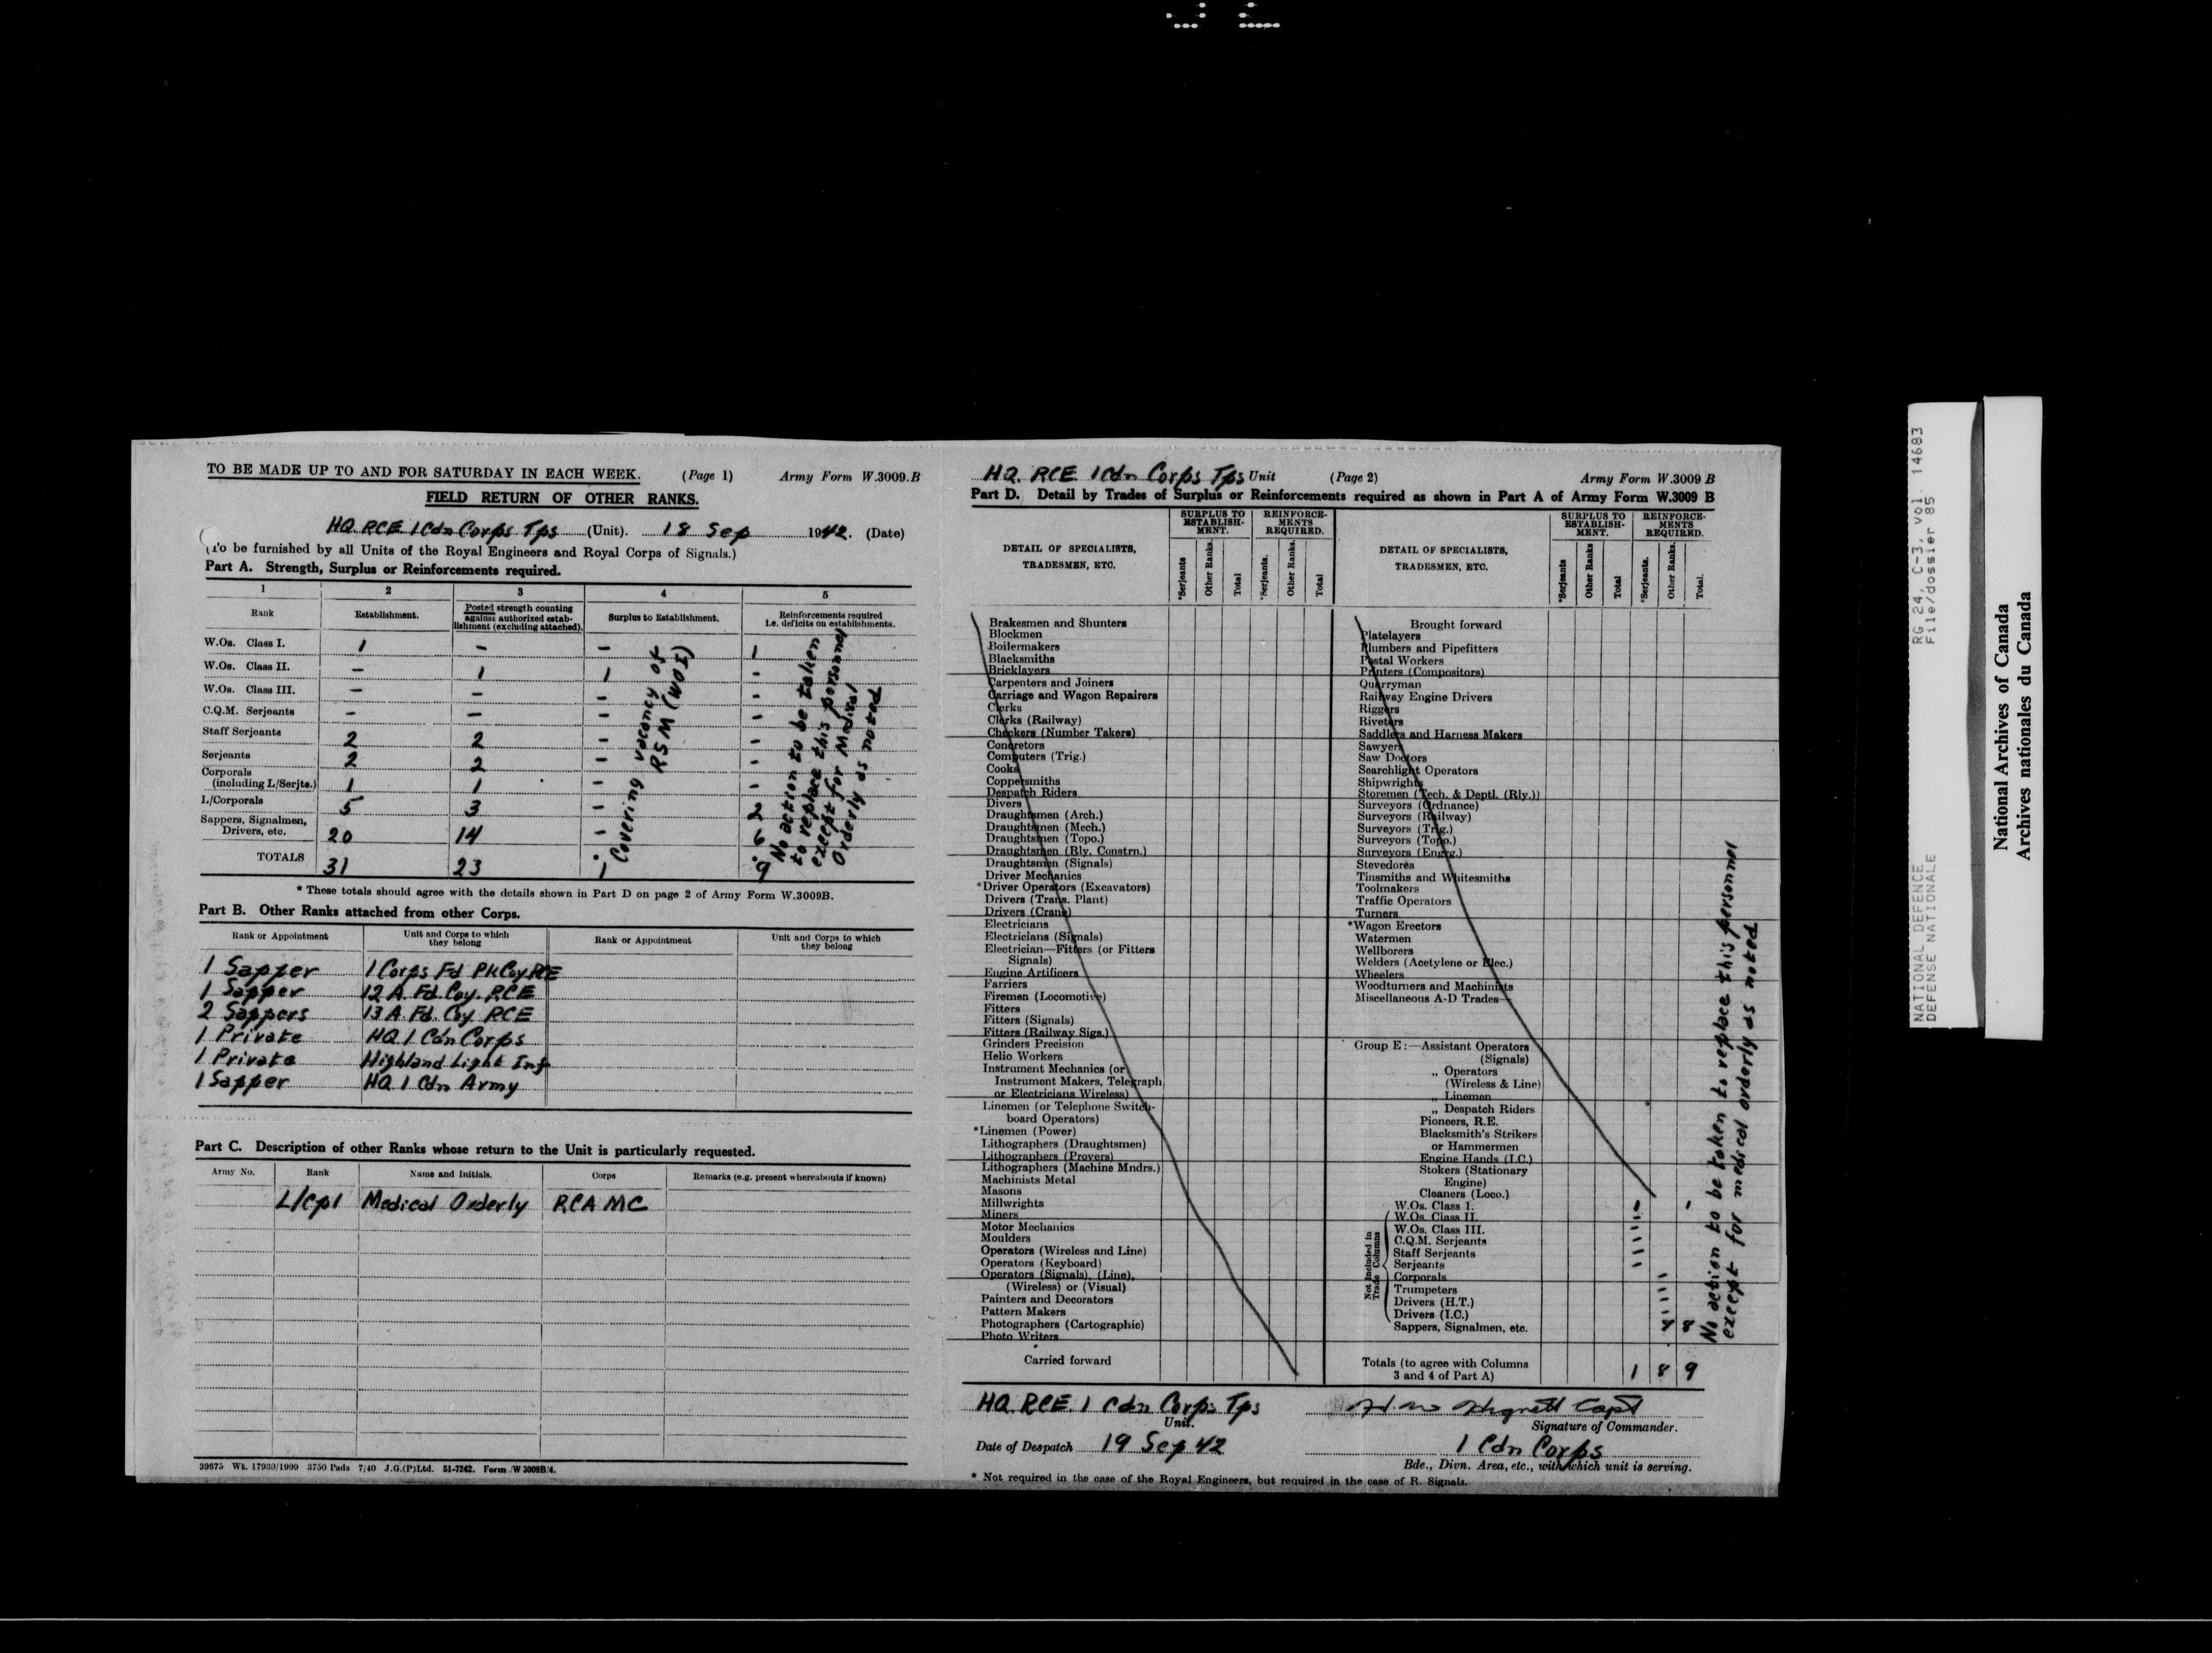 TO BE MADE UP TO AND FOR SATURDAY IN EACH WEEK. (Page 1) Army Form W.3009.B
FIELD RETURN OF OTHER RANKS.
HQ RCE 1 Cdn Corps Tps (Unit). 18 Sep 1942. (Date)
(To be furnished by all Units of the Royal Engineers and Royal Corps of Signals.)
Part A. Strength, Surplus or Reinforcements required.
1 2 3 4 5
Rank Establishment. Posted strength counting against authorized estab-lishment (excluding attached). Surplus to Establishment. Reinforcements required i.e. deficits on establishments.
W.Os. Class I. 1 - - 1
W.Os. Class II. - 1 1 -
W.Os. Class III. - - - -
C.Q.M. Serjeants - - - -
Staff Serjeants 2 2 - -
Serjeants 2 2 - -
Corporals
(including L/Serjts.) 1 1 - -
L/Corporals 5 3 - 2
Sappers, Signalmen,
Drivers, etc. 20 14 - 6
TOTALS 31 23 1 9
Covering vacancy of
RSM (WO I)
No action to be taken
to replace this personnel
except for Medical
Orderly as noted
* These totals should agree with the details shown in Part D on page 2 of Army Form W.3009B.
Part B. Other Ranks attached from other Corps.
Rank or Appointment Unit and Corps to which they belong Rank or Appointment Unit and Corps to which they belong
1 Sapper 1 Corps Fd Pk Coy RCE
1 Sapper 12 A. Fd. Coy. RCE
2 Sappers 13 A. Fd. Coy RCE
1 Private HQ 1 Cdn Corps
1 Private Highland Light Inf
1 Sapper HQ 1 Cdn Army
Part C. Description of other Ranks whose return to the Unit is particularly requested.
Army No. Rank Name and Initials. Corps Remarks (e.g. present whereabouts if known)
L/Cpl Medical Orderly RCAMC
39675 Wt. 17930/1999 3750 Pads 7/40 J.G.(P)Ltd. 51-7242. Form /W 3009B/4.
HQ. RCE 1 Cdn Corps Tps Unit (Page 2) Army Form W.3009 B
Part D. Detail by Trades of Surplus or Reinforcements required as shown in Part A of Army Form W.3009 B
DETAIL OF SPECIALISTS, TRADESMEN, ETC.
SURPLUS TO ESTABLISH-MENT.
REINFORCE-MENTS REQUIRED.
*Serjeants Other Ranks. Total *Serjeants. Other Ranks. Total
Brakesmen and Shunters
Blockmen
Boilermakers
Blacksmiths
Bricklayers
Carpenters and Joiners
Carriage and Wagon Repairers
Clerks
Clerks (Railway)
Checkers (Number Takers)
Concretors
Computers (Trig.)
Cooks
Coppersmiths
Despatch Riders
Divers
Draughtsmen (Arch.)
Draughtsmen (Mech.)
Draughtsmen (Topo.)
Draughtsmen (Rly. Constrn.)
Draughtsmen (Signals)
Driver Mechanics
*Driver Operators (Excavators)
Drivers (Trans. Plant)
Drivers (Crane)
Electricians
Electricians (Signals)
Electrician—Fitters (or Fitters
Signals)
Engine Artificers
Farriers
Firemen (Locomotive)
Fitters
Fitters (Signals)
Fitters (Railway Sigs.)
Grinders Precision
Helio Workers
Instrument Mechanics (or
Instrument Makers, Telegraph
or Electricians Wireless)
Linemen (or Telephone Switch-
board Operators)
*Linemen (Power)
Lithographers (Draughtsmen)
Lithographers (Provers)
Lithographers (Machine Mndrs.)
Machinists Metal
Masons
Millwrights
Miners
Motor Mechanics
Moulders
Operators (Wireless and Line)
Operators (Keyboard)
Operators (Signals), (Line),
(Wireless) or (Visual)
Painters and Decorators
Pattern Makers
Photographers (Cartographic)
Photo Writers
Carried forward
DETAIL OF SPECIALISTS, TRADESMEN, ETC.
SURPLUS TO ESTABLISH-MENT.
REINFORCE-MENTS REQUIRED.
*Serjeants Other Ranks Total *Serjeants. Other Ranks. Total.
Brought forward
Platelayers
Plumbers and Pipefitters
Postal Workers
Printers (Compositors)
Quarryman
Railway Engine Drivers
Riggers
Riveters
Saddlers and Harness Makers
Sawyers
Saw Doctors
Searchlight Operators
Shipwrights
Storemen (Tech. & Deptl. (Rly.))
Surveyors (Ordnance)
Surveyors (Railway)
Surveyors (Trig.)
Surveyors (Topo.)
Surveyors (Engrg.)
Stevedores
Tinsmiths and Whitesmiths
Toolmakers
Traffic Operators
Turners
*Wagon Erectors
Watermen
Wellborers
Welders (Acetylene or Elec.)
Wheelers
Woodturners and Machinists
Miscellaneous A-D Trades—
Group E:—Assistant Operators
(Signals)
„ Operators
(Wireless & Line)
„ Linemen
„ Despatch Riders
Pioneers, R.E.
Blacksmith's Strikers
or Hammermen
Engine Hands (I.C.)
Stokers (Stationary
Engine)
Cleaners (Loco.)
Not Included in Trade Columns
W.Os. Class I.
W.Os. Class II.
W.Os. Class III.
C.Q.M. Serjeants
Staff Serjeants
Serjeants
Corporals
Trumpeters
Drivers (H.T.)
Drivers (I.C.)
Sappers, Signalmen, etc.
Totals (to agree with Columns
3 and 4 of Part A) 1 8 9
No action to be taken to replace this personnel
except for medical orderly as noted
HQ. RCE. 1 Cdn Corps Tps
Unit.
Capt
Signature of Commander.
Date of Despatch 19 Sep 42
1 Cdn Corps
Bde., Divn. Area, etc., with which unit is serving.
* Not required in the case of the Royal Engineers, but required in the case of R. Signals.
NATIONAL DEFENCE RG 24, C-3, vol. 14683
DEFENSE NATIONALE File/dossier 85
National Archives of Canada
Archives nationales du Canada